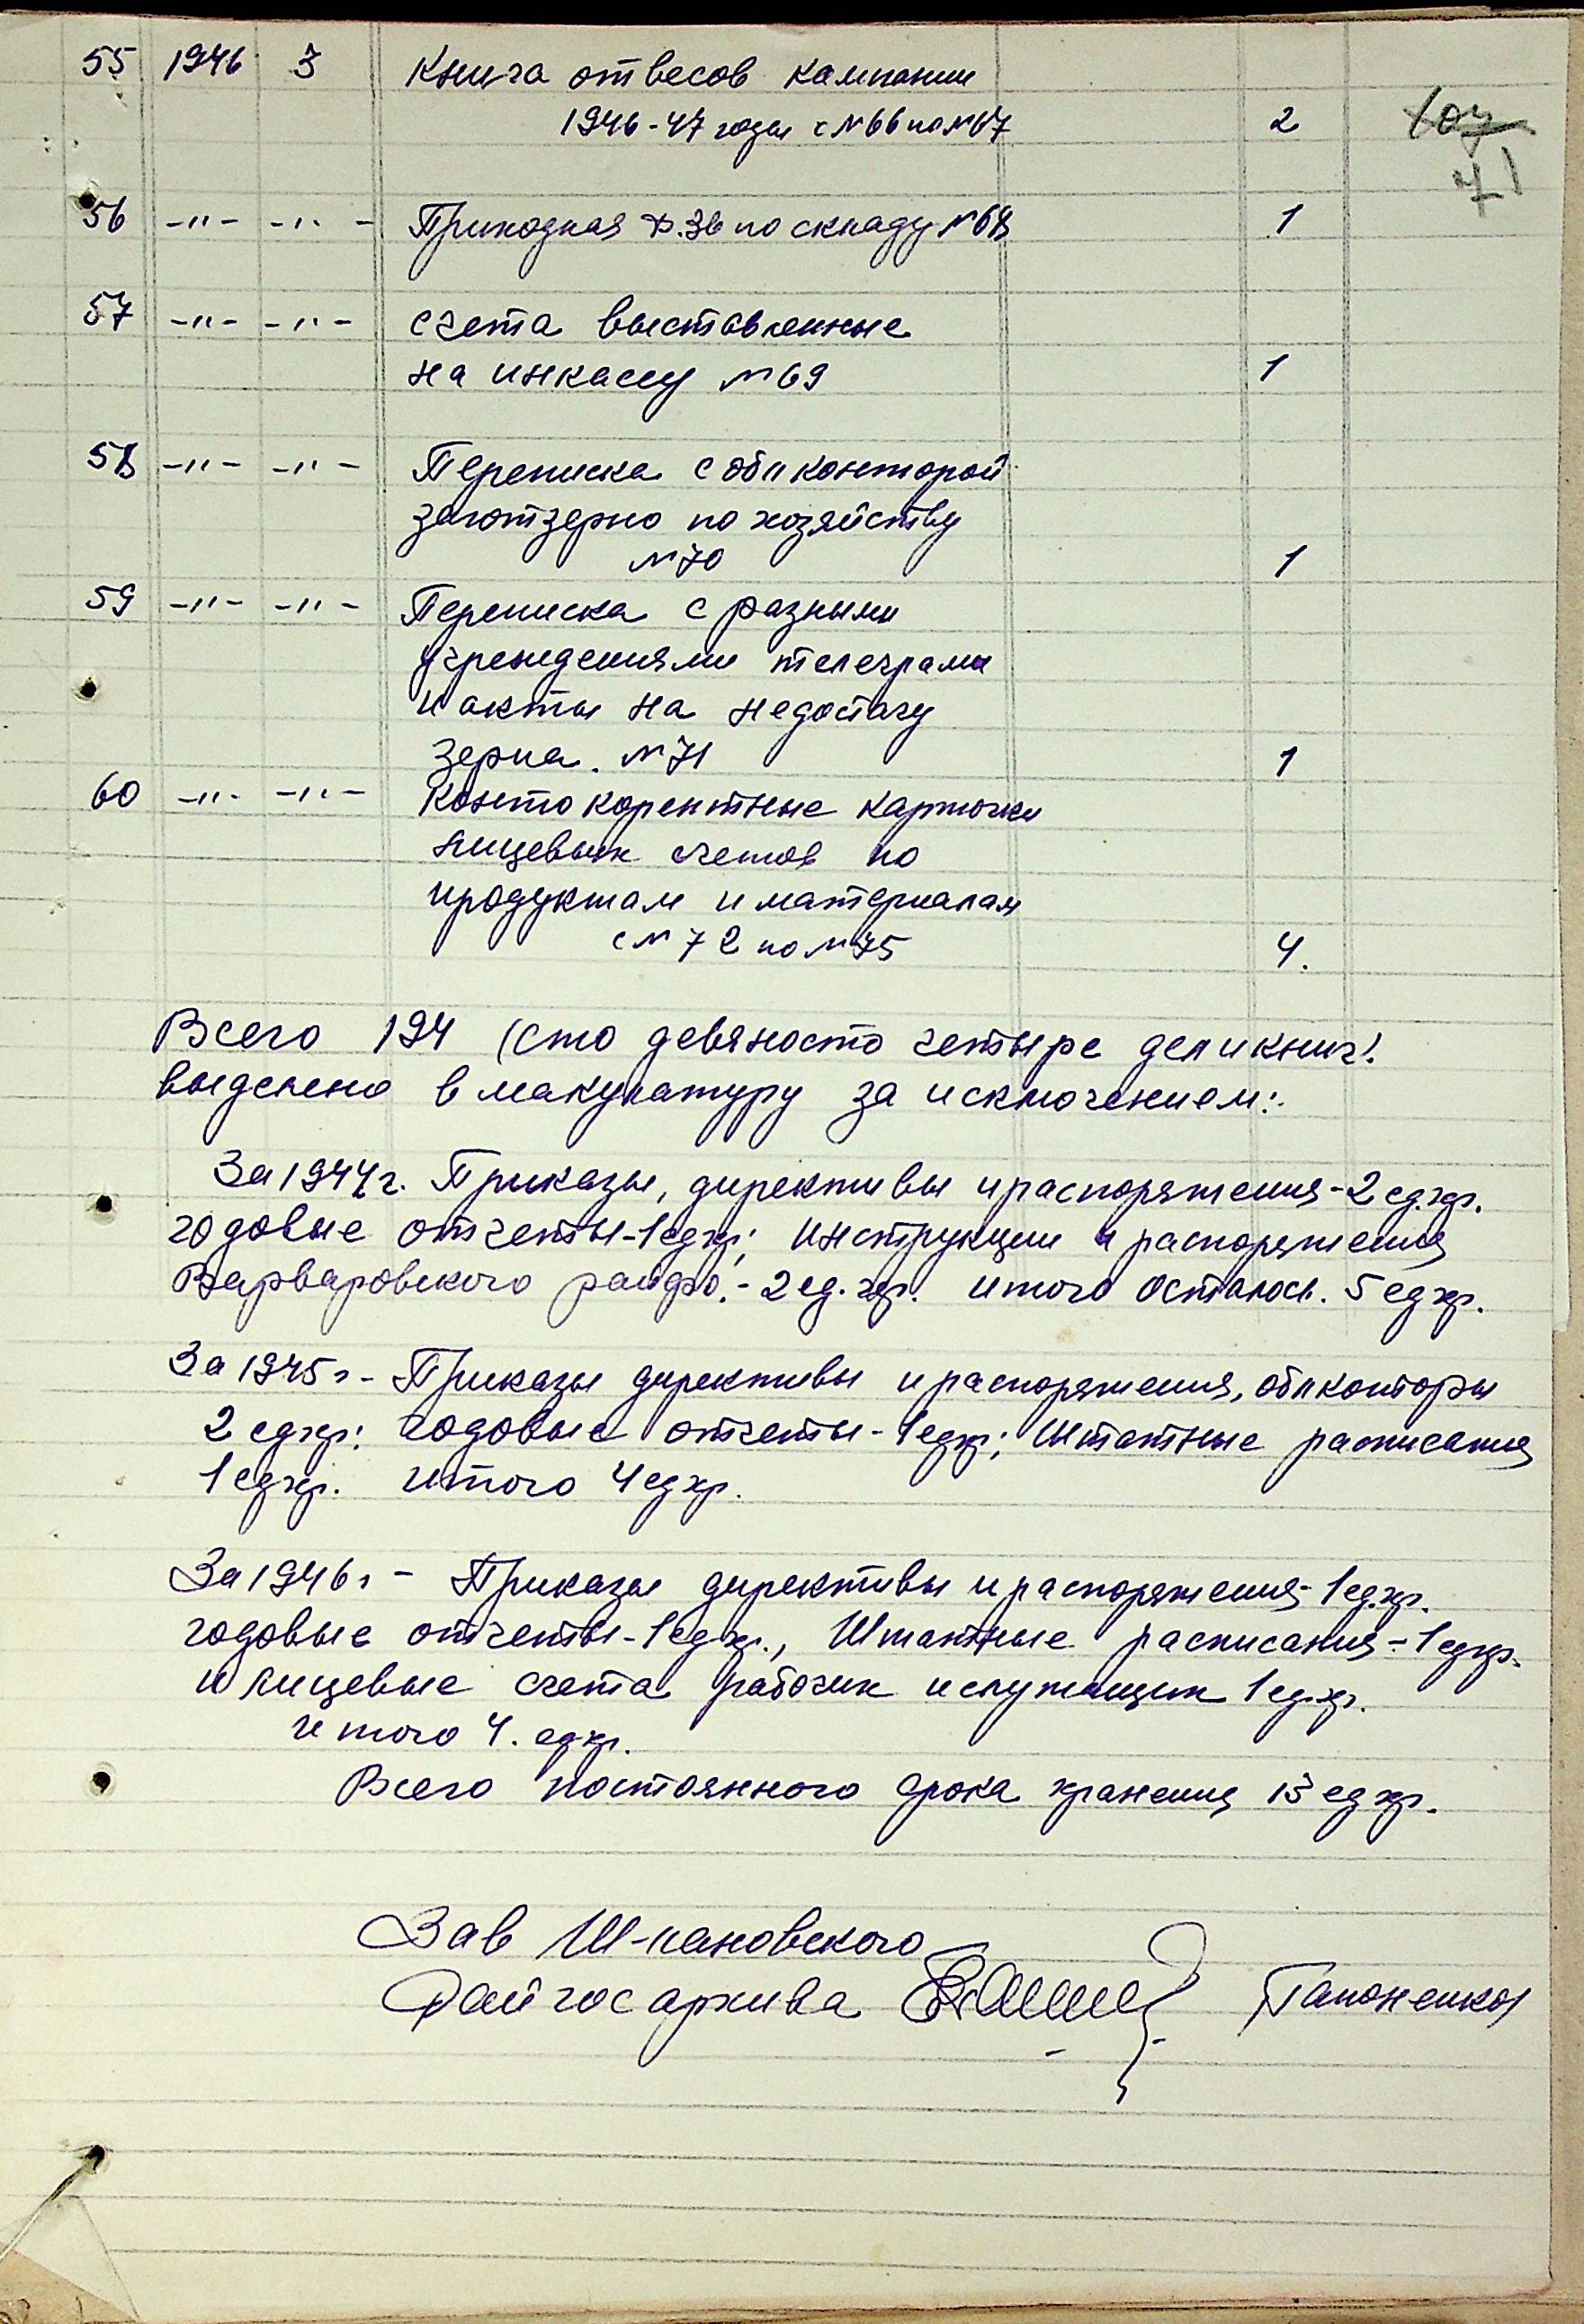 55 1946 3 Книга отвесов кампании
1946-47 годы с №66 по №67 2
107
71
56 -"- -"- Приходная ф.36 по складу №68 1
57 -"- -"- счета выставленные
на инкассу №69 1
58 -"- -"- Переписка с облконторой
заготзерно по хозяйству
№70 1
59 -"- -"- Переписка с разными
учреждениями телеграмы
и акты на недостачу
зерна. №71 1
60 -"- -"- Контокорентные карточки
лицевых счетов по
продуктам и материалам
с №72 по №75 4.
Всего 194 (сто девяносто четыре дел и книг)
выделено в макулатуру за исключением:
За 1944г. Приказы, директивы и распоряжения-2 ед.хр.
годовые отчеты-1ед хр; инструкции и распоряжения
Варваровского райфо.-2 ед.хр. итого осталось. 5 ед хр.
За 1945г- Приказы директивы и распоряжения, облконторы
2 ед хр; годовые отчеты-1ед хр; Штатные расписания
1 ед хр. итого 4 ед хр.
За 1946г- Приказы директивы и распоряжения-1ед.хр.
годовые отчеты-1ед.хр., Штатные расписания-1ед хр.
и лицевые счета рабочих и служащих 1ед.хр.
итого 4. ед хр.
Всего постоянного срока хранения 13 ед хр.
Зав Ш-лановского
Райгосархива Гапоненко/